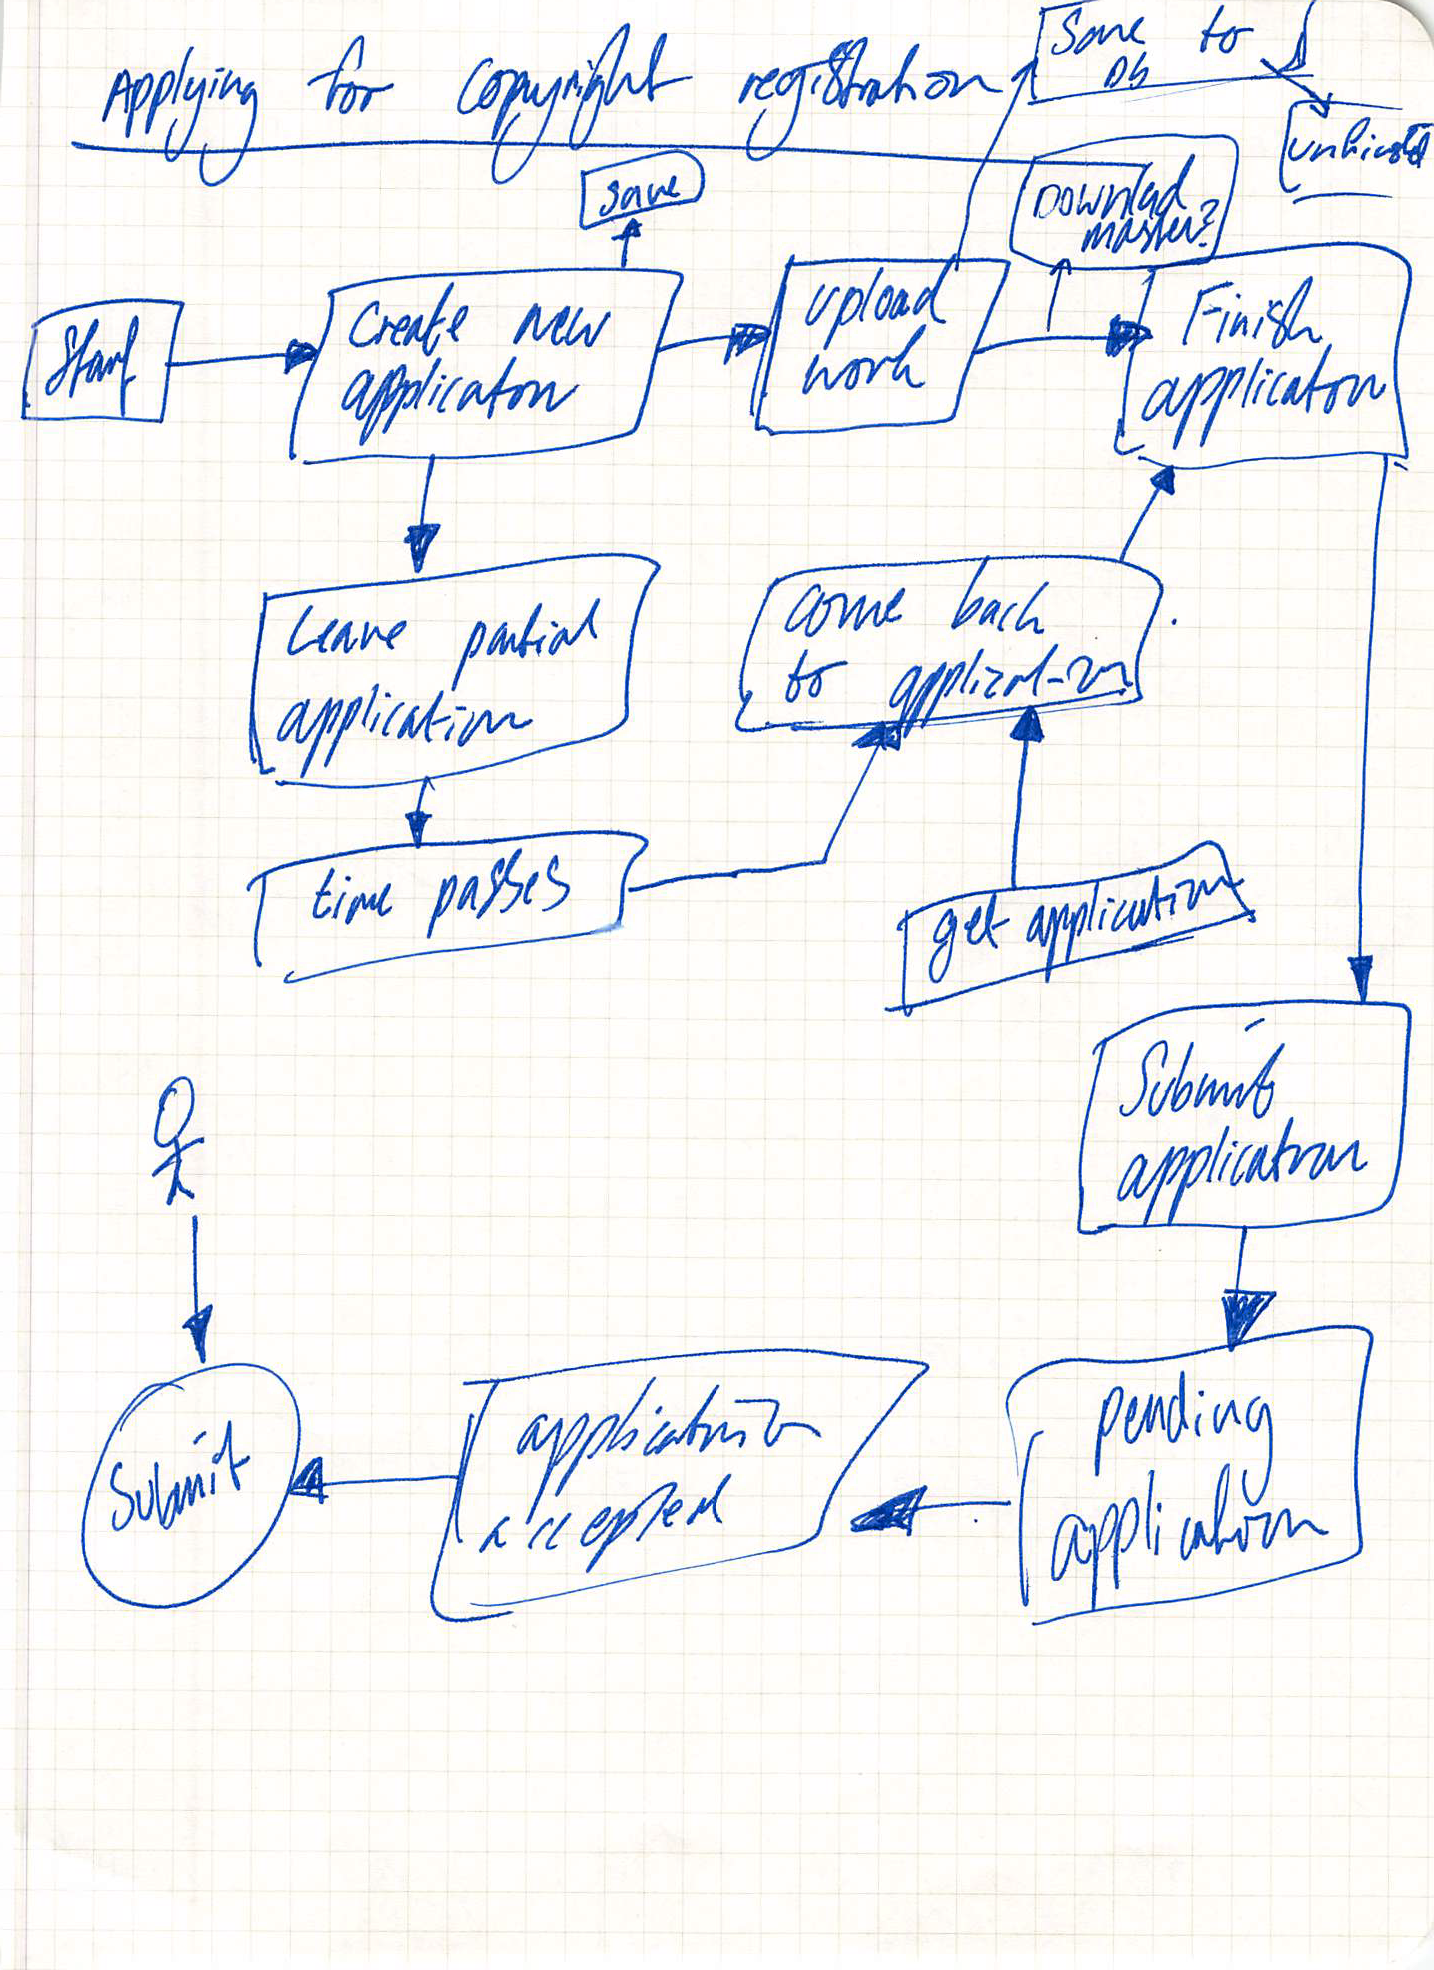 Applying for Copyright registration
Save to
DB
save
Download
master?
Start
Create new
application
upload
work
Finish
application
Leave partial
application
come back
to application
time passes
get application
Submit
application
Submit
application
accepted
pending
application